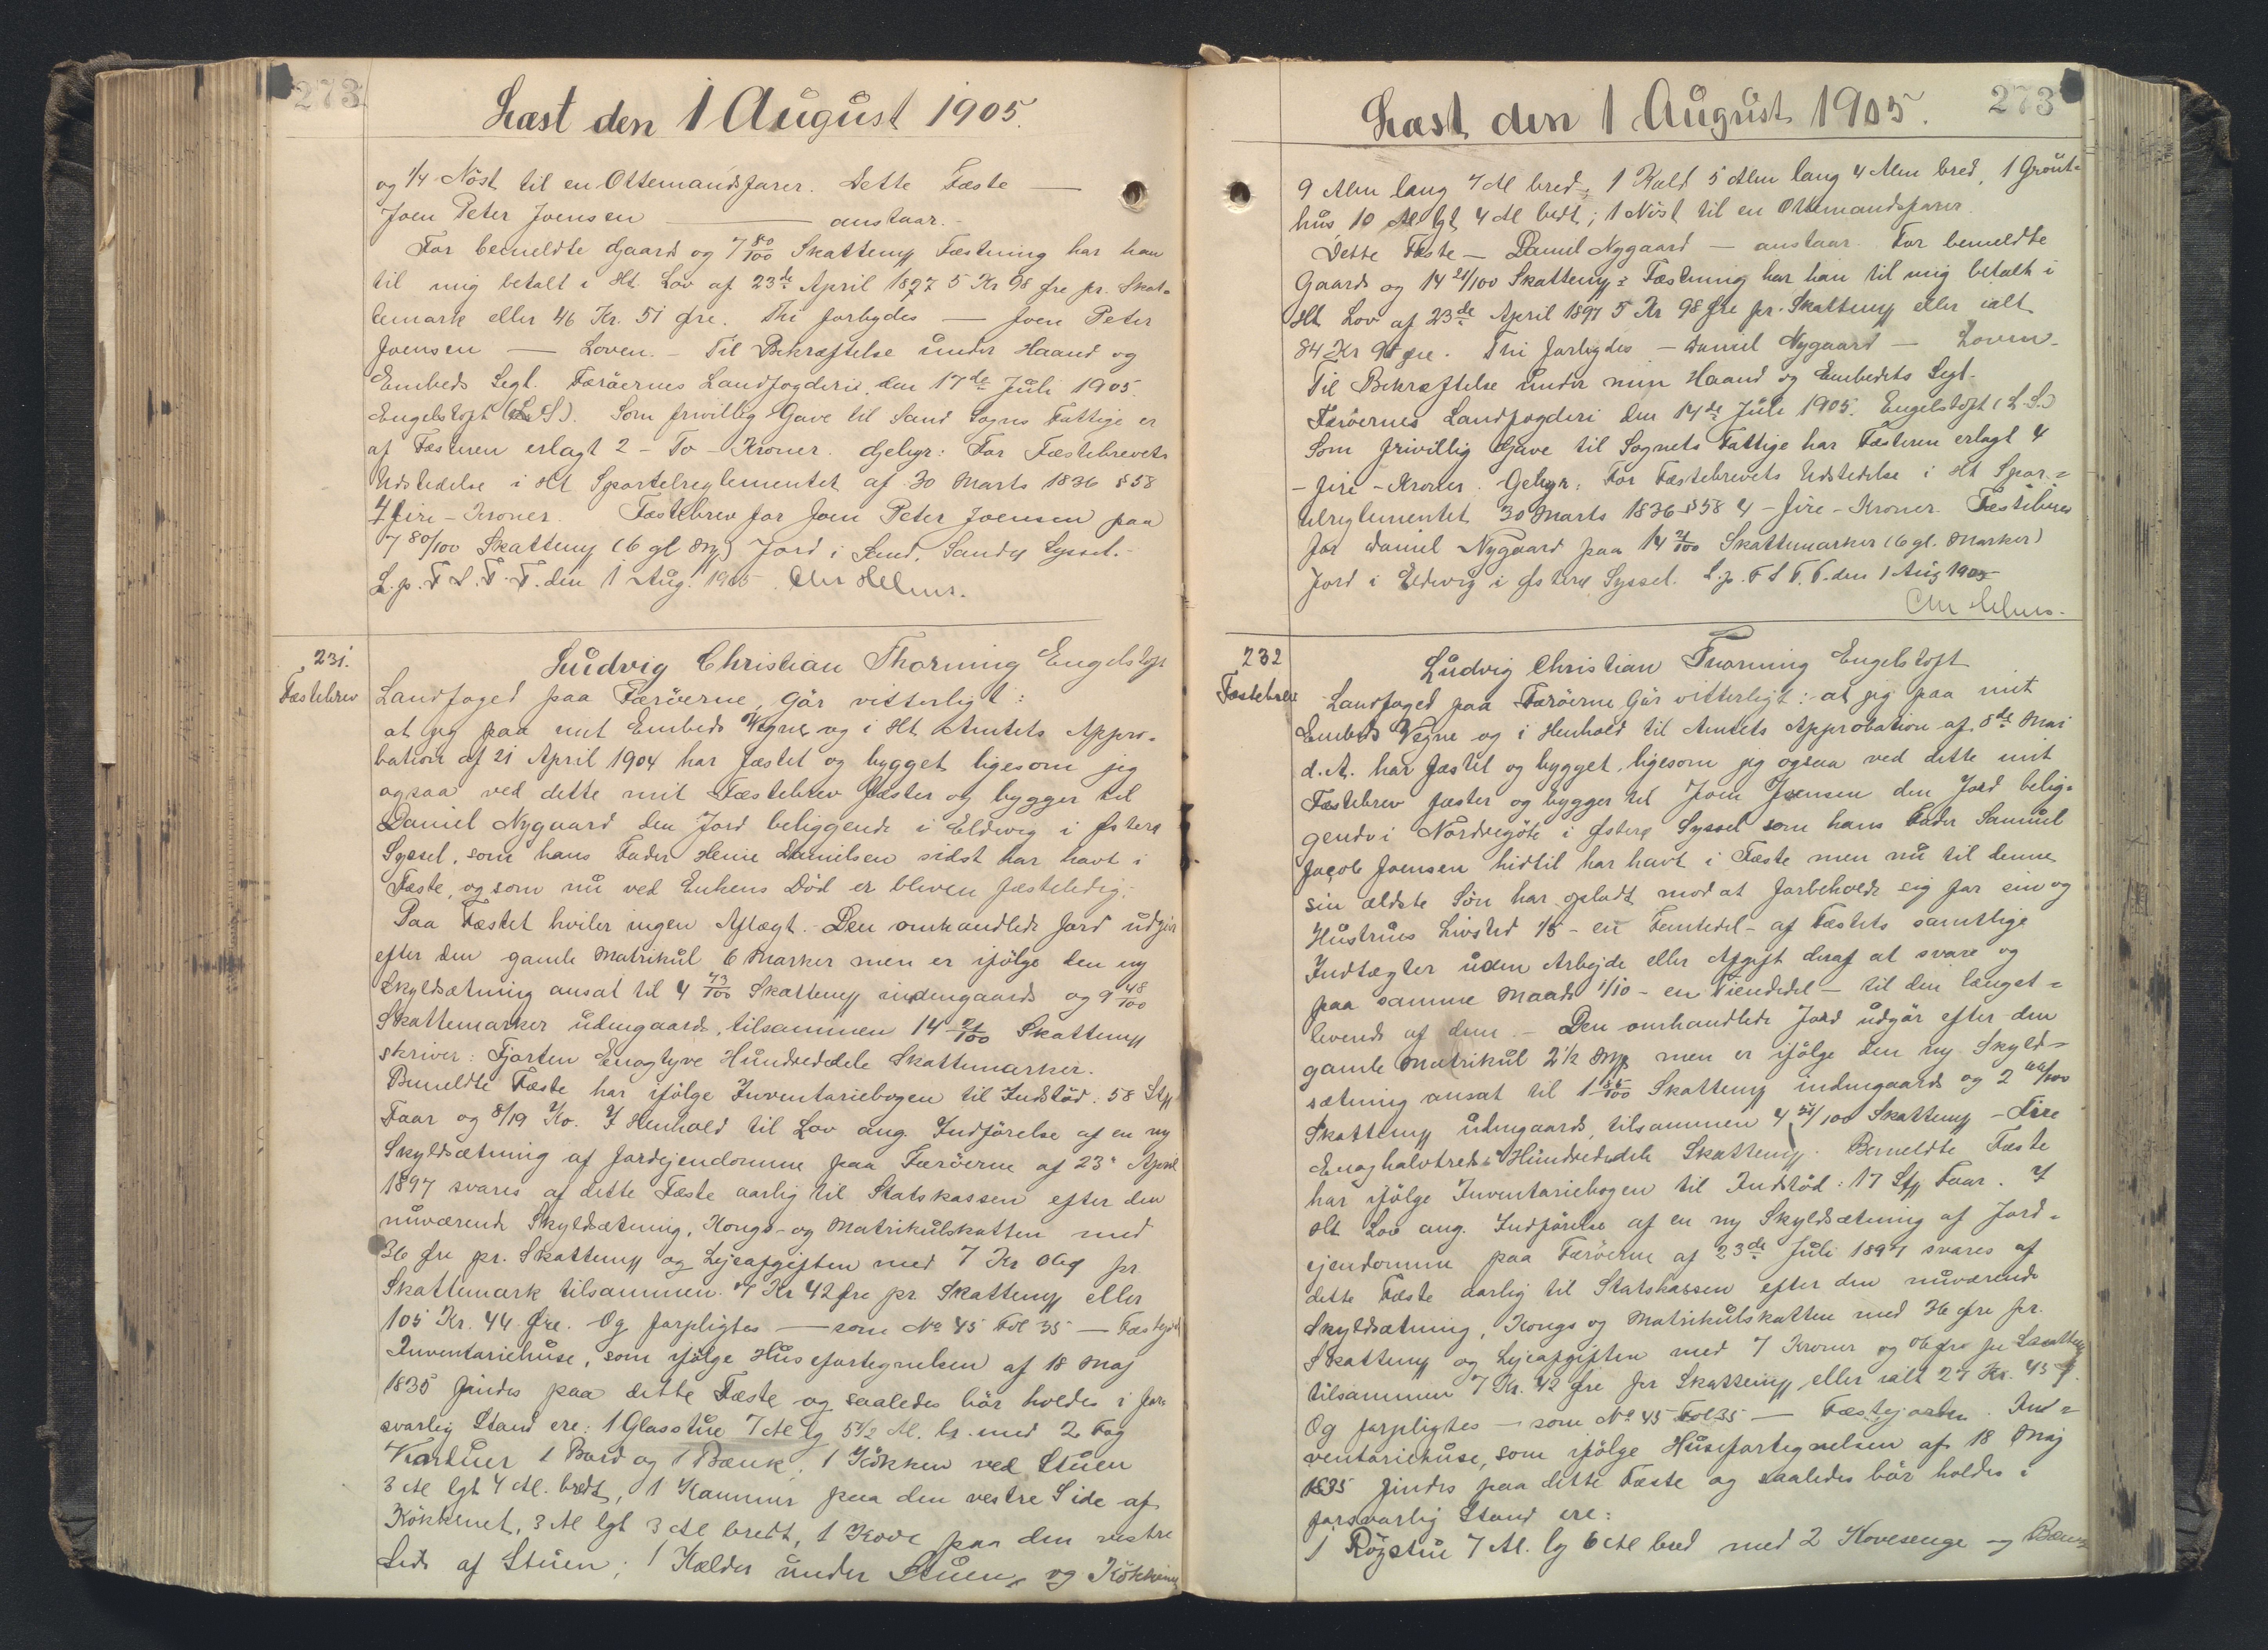 273
Læst den 1 August 1905.
og 1/4 Nöst til en Ottemandsfarer. Dette Fæste —
Joen Peter Joensen — anstaar.
For bemeldte Gaard og 7 80/100 Skattemk Fæstning har han
til mig betalt i Ht. Lov af 23de April 1897 5 Kr 98 Øre pr. Skat-
temark eller 46 Kr. 51 Øre. Thi forbydes — Joen Peter
Joensen — Loven. — Til Bekræftelse under Haand og
Embeds Segl. Færöernes Landfogderi den 17de Juli 1905.
Engelstoft (L.S). Som frivillig Gave til Sand Sogns Fattige er
af Fæsteren erlagt 2 - To - Kroner. Gebyr: For Fæstebrevets
Udstedelse i Ht Sportelreglementet af 30 Marts 1836 § 58
4 fire - Kroner. Fæstebrev for Joen Peter Joensen paa
7 80/100 Skattemk (6 gl Mk) Jord i Sand, Sandø Syssel.-
L. p. F S. F. F. den 1 Aug. 1905. Chr Helms.
231.
Fæstebrev
Ludvig Christian Thorning Engelstoft
Landfoged paa Færöerne, Gör vitterligt:
at jeg paa mit Embeds Vegne og i Ht Amtets Appro-
bation af 21 April 1904 har fæstet og bygget ligesom jeg
ogsaa ved dette mit Fæstebrev fæster og bygger til
Daniel Nygaard den Jord beliggende i Eldevig i Østerø
Syssel, som hans Fader Henie Danielsen sidst har havt i
Fæste, og som nu ved Enkens Död er bleven fæsteledig.
Paa Fæstet hviler ingen Aflægt. Den omhandlede Jord udgör
efter den gamle Matrikul 6 Marker men er ifölge den ny
Skyldsætning ansat til 4 73/100 Skattemk indengaards og 9 48/100
Skattemarker udengaards, tilsammen 14 21/100 Skattemk
skriver: Fjorten Enogtyve Hundrededele Skattemarker.
Bemeldte Fæste har ifölge Inventariebogen til Indstöd: 58 Stk
Faar og 8/19 Ko. I Henhold til Lov ang. Indförelse af en ny
Skyldsætning af Jordejendomme paa Færöerne af 23' April
1897 svares af dette Fæste aarlig til Statskassen efter den
nuværende Skyldsætning, Kongs- og Matrikulskatten med
36 Øre pr. Skattemk og Lejeafgiften med 7 Kr 06Ø pr
Skattemark tilsammen 7 Kr 42 Øre pr Skattemk eller
105 Kr. 44 Øre. Og forpligtes — som No 45 Fol 35 — Fæstejord
Inventariehuse, som ifölge Husefortegnelsen af 18 Maj
1835 findes paa dette Fæste og saaledes bör holdes i for-
svarlig Stand ere: 1 Glasstue 7 Al lg 5 1/2 Al. br. med 2 Fag
Karduer 1 Bord og 1 Bænk, 1 Kökken ved Stuen
3 Al lgt 4 Al. bredt, 1 Kammer paa den vestre Side af
Kökkenet, 3 Al lgt 3 Al bredt, 1 Kove paa den vestre
Side af Stuen; 1 Kælder under Stuen og Kökkenet
Læst den 1 August 1905.
273
9 Alen lang 7 Al bred; 1 Hjald 5 Alen lang 4 Alen bred, 1 Grönt-
hus 10 Al lgt 4 Al bredt; 1 Nöst til en Ottemandsfarer.
Dette Fæste — Daniel Nygaard — anstaar. For bemeldte
Gaard og 14 21/100 Skattemk: Fæstning har han til mig betalt i
Ht Lov af 23de April 1897 5 Kr 98 Øre pr. Skattemk eller ialt
84 Kr 98 Øre. Thi forbydes — Daniel Nygaard — Loven.
Til Bekræftelse under min Haand og Embedets Segl.
Færöernes Landfogderi den 14de Juli 1905. Engelstoft (L.S.)
Som frivillig Gave til Sognets Fattige har Fæsteren erlagt 4
- fire - Kroner. Gebyr: For Fæstebrevets Udstedelse i Ht Spor-
telreglementet 30 Marts 1836 § 58 4 - fire - Kroner. Fæstebrev
for Daniel Nygaard paa 14 21/100 Skattemarker (6 gl. Marker)
Jord i Eldevig i Østerø Syssel. L. p. F S F. F. den 1 Aug 1905
Chr Helms.
232
Fæstebrev
Ludvig Christian Thorning Engelstoft
Landfoged paa Færöerne Gör vitterligt: at jeg paa mit
Embeds Vegne og i Henhold til Amtets Approbation af 8de Mai
d. A. har fæstet og bygget, ligesom jeg ogsaa ved dette mit
Fæstebrev fæster og bygger til Joen Joensen den Jord belig-
gende i Nordregöte i Østerø Syssel som hans Fader Samuel
Jacob Joensen hidtil har havt i Fæste men nu til denne
sin ældste Sön har opladt mod at forbeholde sig for sin og
Hustrues Livstid 1/5 - en Femtedel - af Fæstets samtlige
Indtægter uden Arbejde eller Afgift deraf at svare og
paa samme Maade 1/10 - en Tiendedel - til den længst-
levende af dem. - Den omhandlede Jord udgör efter den
gamle Matrikul 2 1/2 Mk men er ifölge den ny Skyld-
sætning ansat til 1 85/100 Skattemk indengaards og 2 66/100
Skattemk udengaards, tilsammen 4 51/100 Skattemk - Fire
Enoghalvtreds Hundrededele Skattemk. Bemeldte Fæste
har ifölge Inventariebogen til Indstöd: 17 Stk Faar. I
Ht Lov ang. Indförelse af en ny Skyldsætning af Jord-
ejendomme paa Færöerne af 23de Juli 1897 svares af
dette Fæste aarlig til Statskassen efter den nuværende
Skyldsætning, Kongs og Matrikulskatten med 36 Øre pr.
Skattemk og Lejeafgiften med 7 Kroner og 06 Øre pr Skattemk
tilsammen 7 Kr. 42 Øre pr Skattemk eller ialt 27 Kr. 45 Ø.
Og forpligtes — som No 45 Fol 35 — Fæstejorden. In-
ventariehuse, som ifölge Husefortegnelsen af 18 Maj
1835 findes paa dette Fæste og saaledes bör holdes i
forsvarlig Stand ere:
1 Rögstue 7 Al. lg 6 Al bred med 2 Kovesenge og